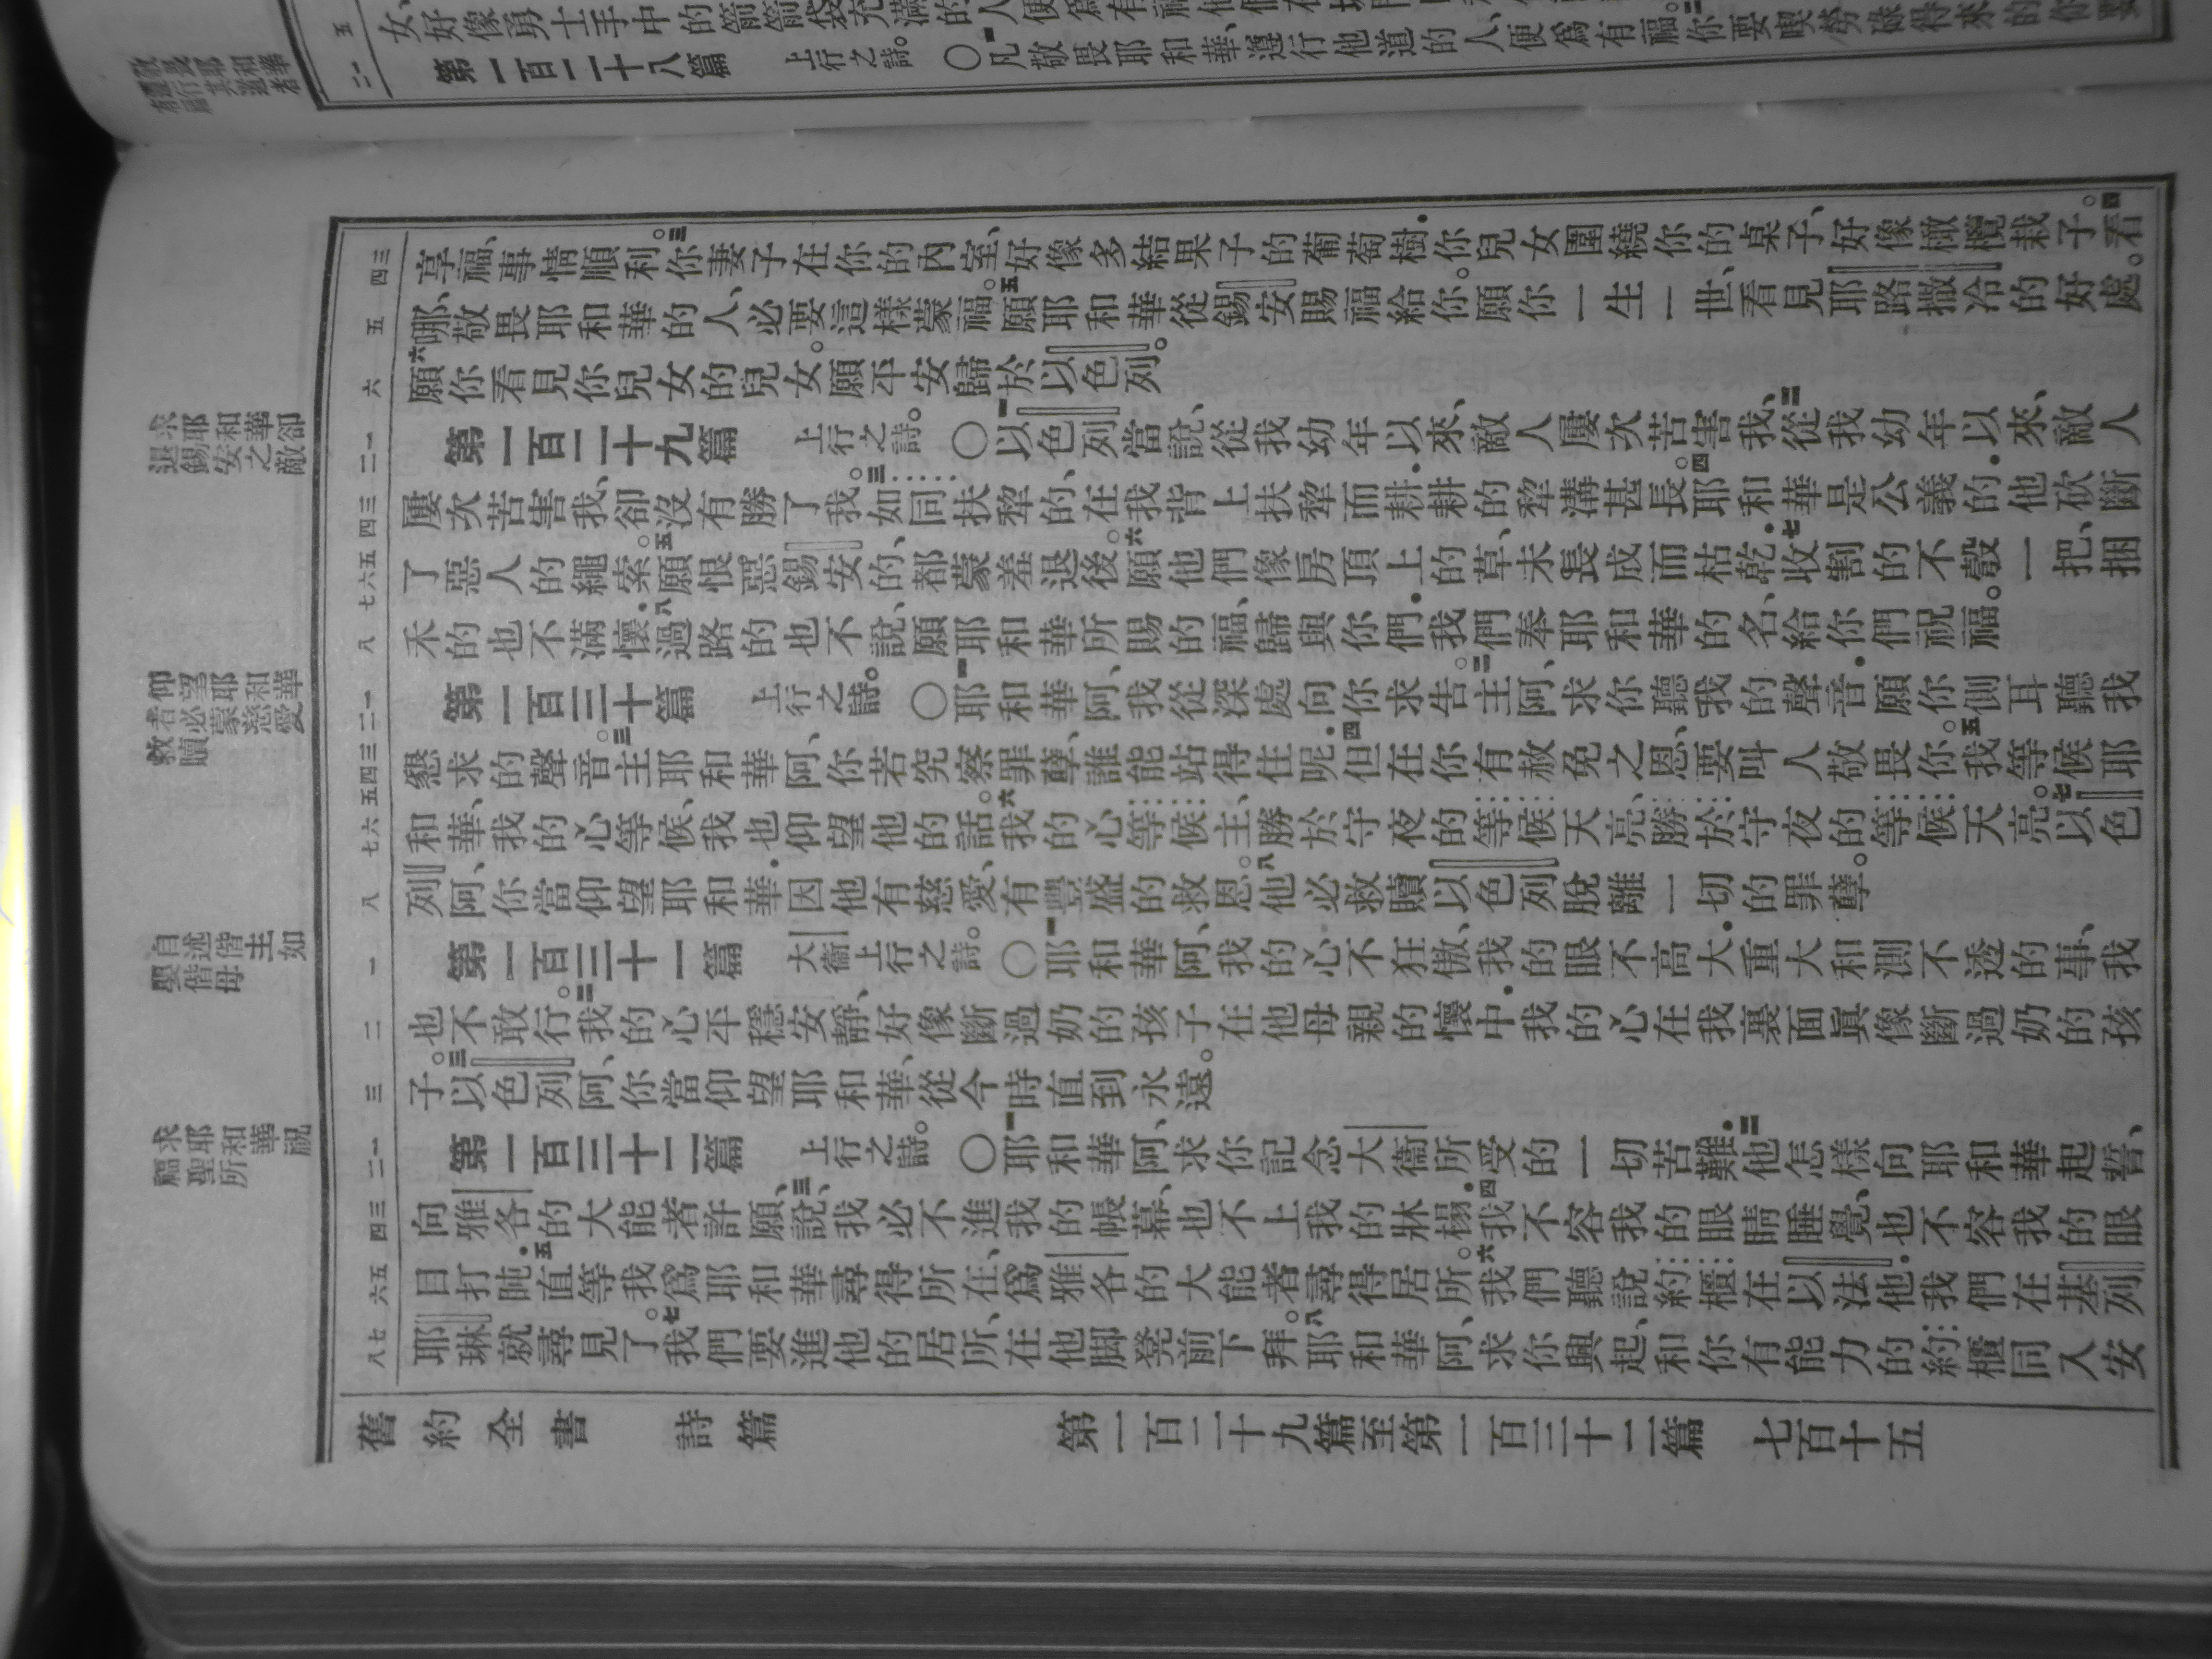 第一百二十八篇 上行之詩。〇一凡敬畏耶和華、遵行他道的人、便爲有福。二你要喫勞碌得來的
享福、事情順利。三你妻子在你的內室、好像多結果子的葡萄樹.你兒女圍繞你的桌子、好像橄欖栽子。四看
哪、敬畏耶和華的人、必要這樣蒙福。五願耶和華從錫安賜福給你。願你一生一世、看見耶路撒冷的好處。
六願你看見你兒女的兒女。願平安歸於以色列。
第一百二十九篇 上行之詩。〇一以色列當說、從我幼年以來、敵人屢次苦害我、二從我幼年以來、敵人
屢次苦害我、卻沒有勝了我。三如同扶犂的、在我背上扶犂而耕.耕的犂溝甚長。四耶和華是公義的.他砍斷
了惡人的繩索。五願恨惡錫安的、都蒙羞退後。六願他們像房頂上的草、未長成而枯乾.七收割的不彀一把、捆
禾的也不滿懷.八過路的也不說、願耶和華所賜的福、歸與你們.我們奉耶和華的名、給你們祝福。
第一百三十篇 上行之詩。〇一耶和華阿、我從深處向你求告。二主阿、求你聽我的聲音.願你側耳聽我
懇求的聲音。三主耶和華阿、你若究察罪孽、誰能站得住呢.四但在你有赦免之恩、要叫人敬畏你。五我等候耶
和華、我的心等候、我也仰望他的話。六我的心等候主、勝於守夜的等候天亮、勝於守夜的等候天亮。七以色
列阿、你當仰望耶和華.因他有慈愛、有豐盛的救恩。八他必救贖以色列脫離一切的罪孽。
第一百三十一篇 大衞上行之詩。〇一耶和華阿、我的心不狂傲、我的眼不高大.重大和測不透的事、我
也不敢行。二我的心平穩安靜、好像斷過奶的孩子在他母親的懷中.我的心在我裏面眞像斷過奶的孩
子。三以色列阿、你當仰望耶和華、從今時直到永遠。
第一百三十二篇 上行之詩。〇一耶和華阿、求你記念大衞所受的一切苦難.二他怎樣向耶和華起誓、
向雅各的大能者許願、三說、我必不進我的帳幕、也不上我的牀榻.四我不容我的眼睛睡覺、也不容我的眼
目打盹.五直等我爲耶和華尋得所在、爲雅各的大能者尋得居所。六我們聽說約櫃在以法他.我們在基列
耶琳就尋見了。七我們要進他的居所、在他脚凳前下拜。八耶和華阿、求你興起、和你有能力的約櫃同入安
舊約全書 詩篇 第一百二十九篇至第一百三十二篇 七百十五
求耶和華卻
退錫安之敵
仰望耶和華
者必蒙慈愛
救贖
自述偕主如
嬰偕母
求耶和華祝
福聖所